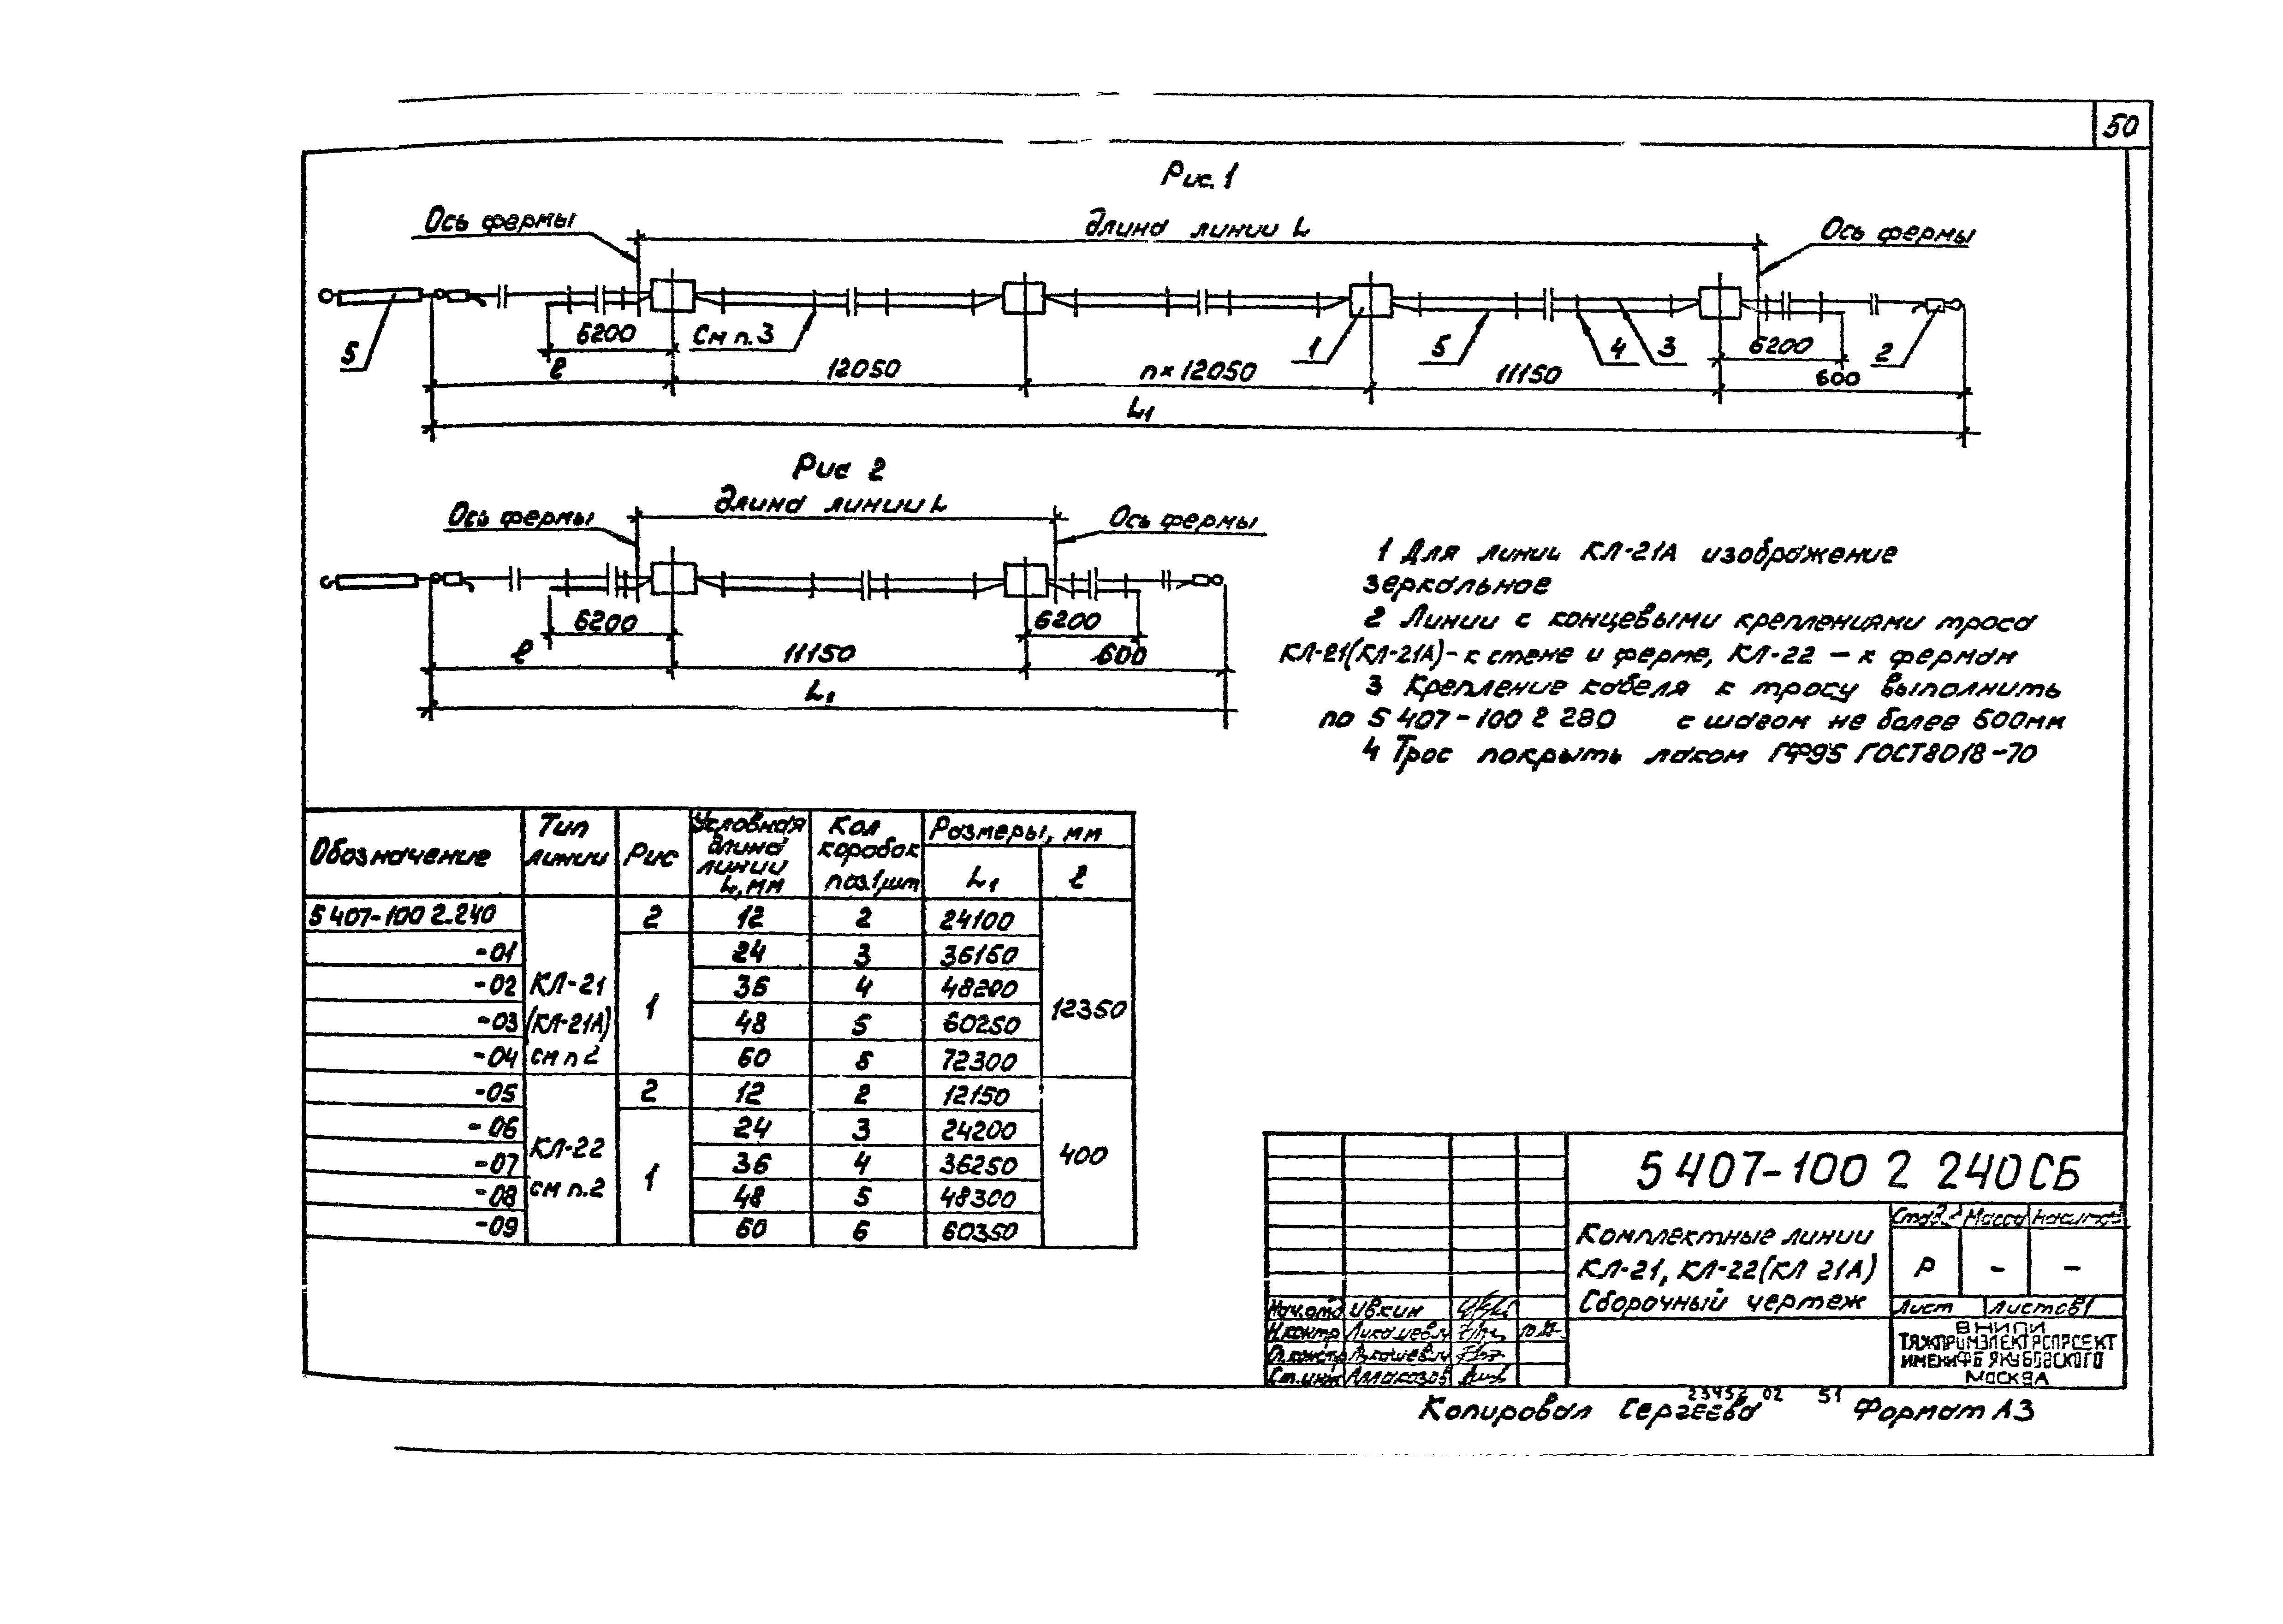 50
Рис. 1
Ось фермы
длина линии L
Ось фермы
5
6200
См п. 3
1
5
4
3
6200
2
l
12050
п×12050
11150
600
L1
Рис 2
длина линии L
Ось фермы
Ось фермы
6200
6200
l
11150
600
L1
1 Для линии КЛ-21А изображение
зеркальное
2 Линии с концевыми креплениями троса
КЛ-21(КЛ-21А)-к стене и ферме, КЛ-22 - к фермам
3 Крепление кабеля к тросу выполнить
по 5 407-100 2 280 с шагом не более 600мм
4 Трос покрыть лаком ГФ95 ГОСТ8018-70
Обозначение
Тип линии
Рис
Условная длина линии L, мм
Кол коробок поз.1, шт
Размеры, мм
L1
l
5 407-100 2.240 2 12 2 24100
-01 24 3 36150
-02 КЛ-21 36 4 48200
-03 (КЛ-21А) 1 48 5 60250 12350
-04 см п 2 60 6 72300
-05 2 12 2 12150
-06 24 3 24200
-07 КЛ-22 36 4 36250 400
-08 см п.2 1 48 5 48300
-09 60 6 60350
5 407-100 2 240СБ
Комплектные линии
КЛ-21, КЛ-22(КЛ 21А)
Сборочный чертеж
Масса
Р - -
Лист Листов 1
Нач.отд Ивкин
Н.контр
Ст.инж
ВНИПИ
ТЯЖПРОМЭЛЕКТРОПРОЕКТ
ИМЕНИ Ф Б ЯКУБОВСКОГО
МОСКВА
23452 02 51
Копировал Сергеева Формат А3